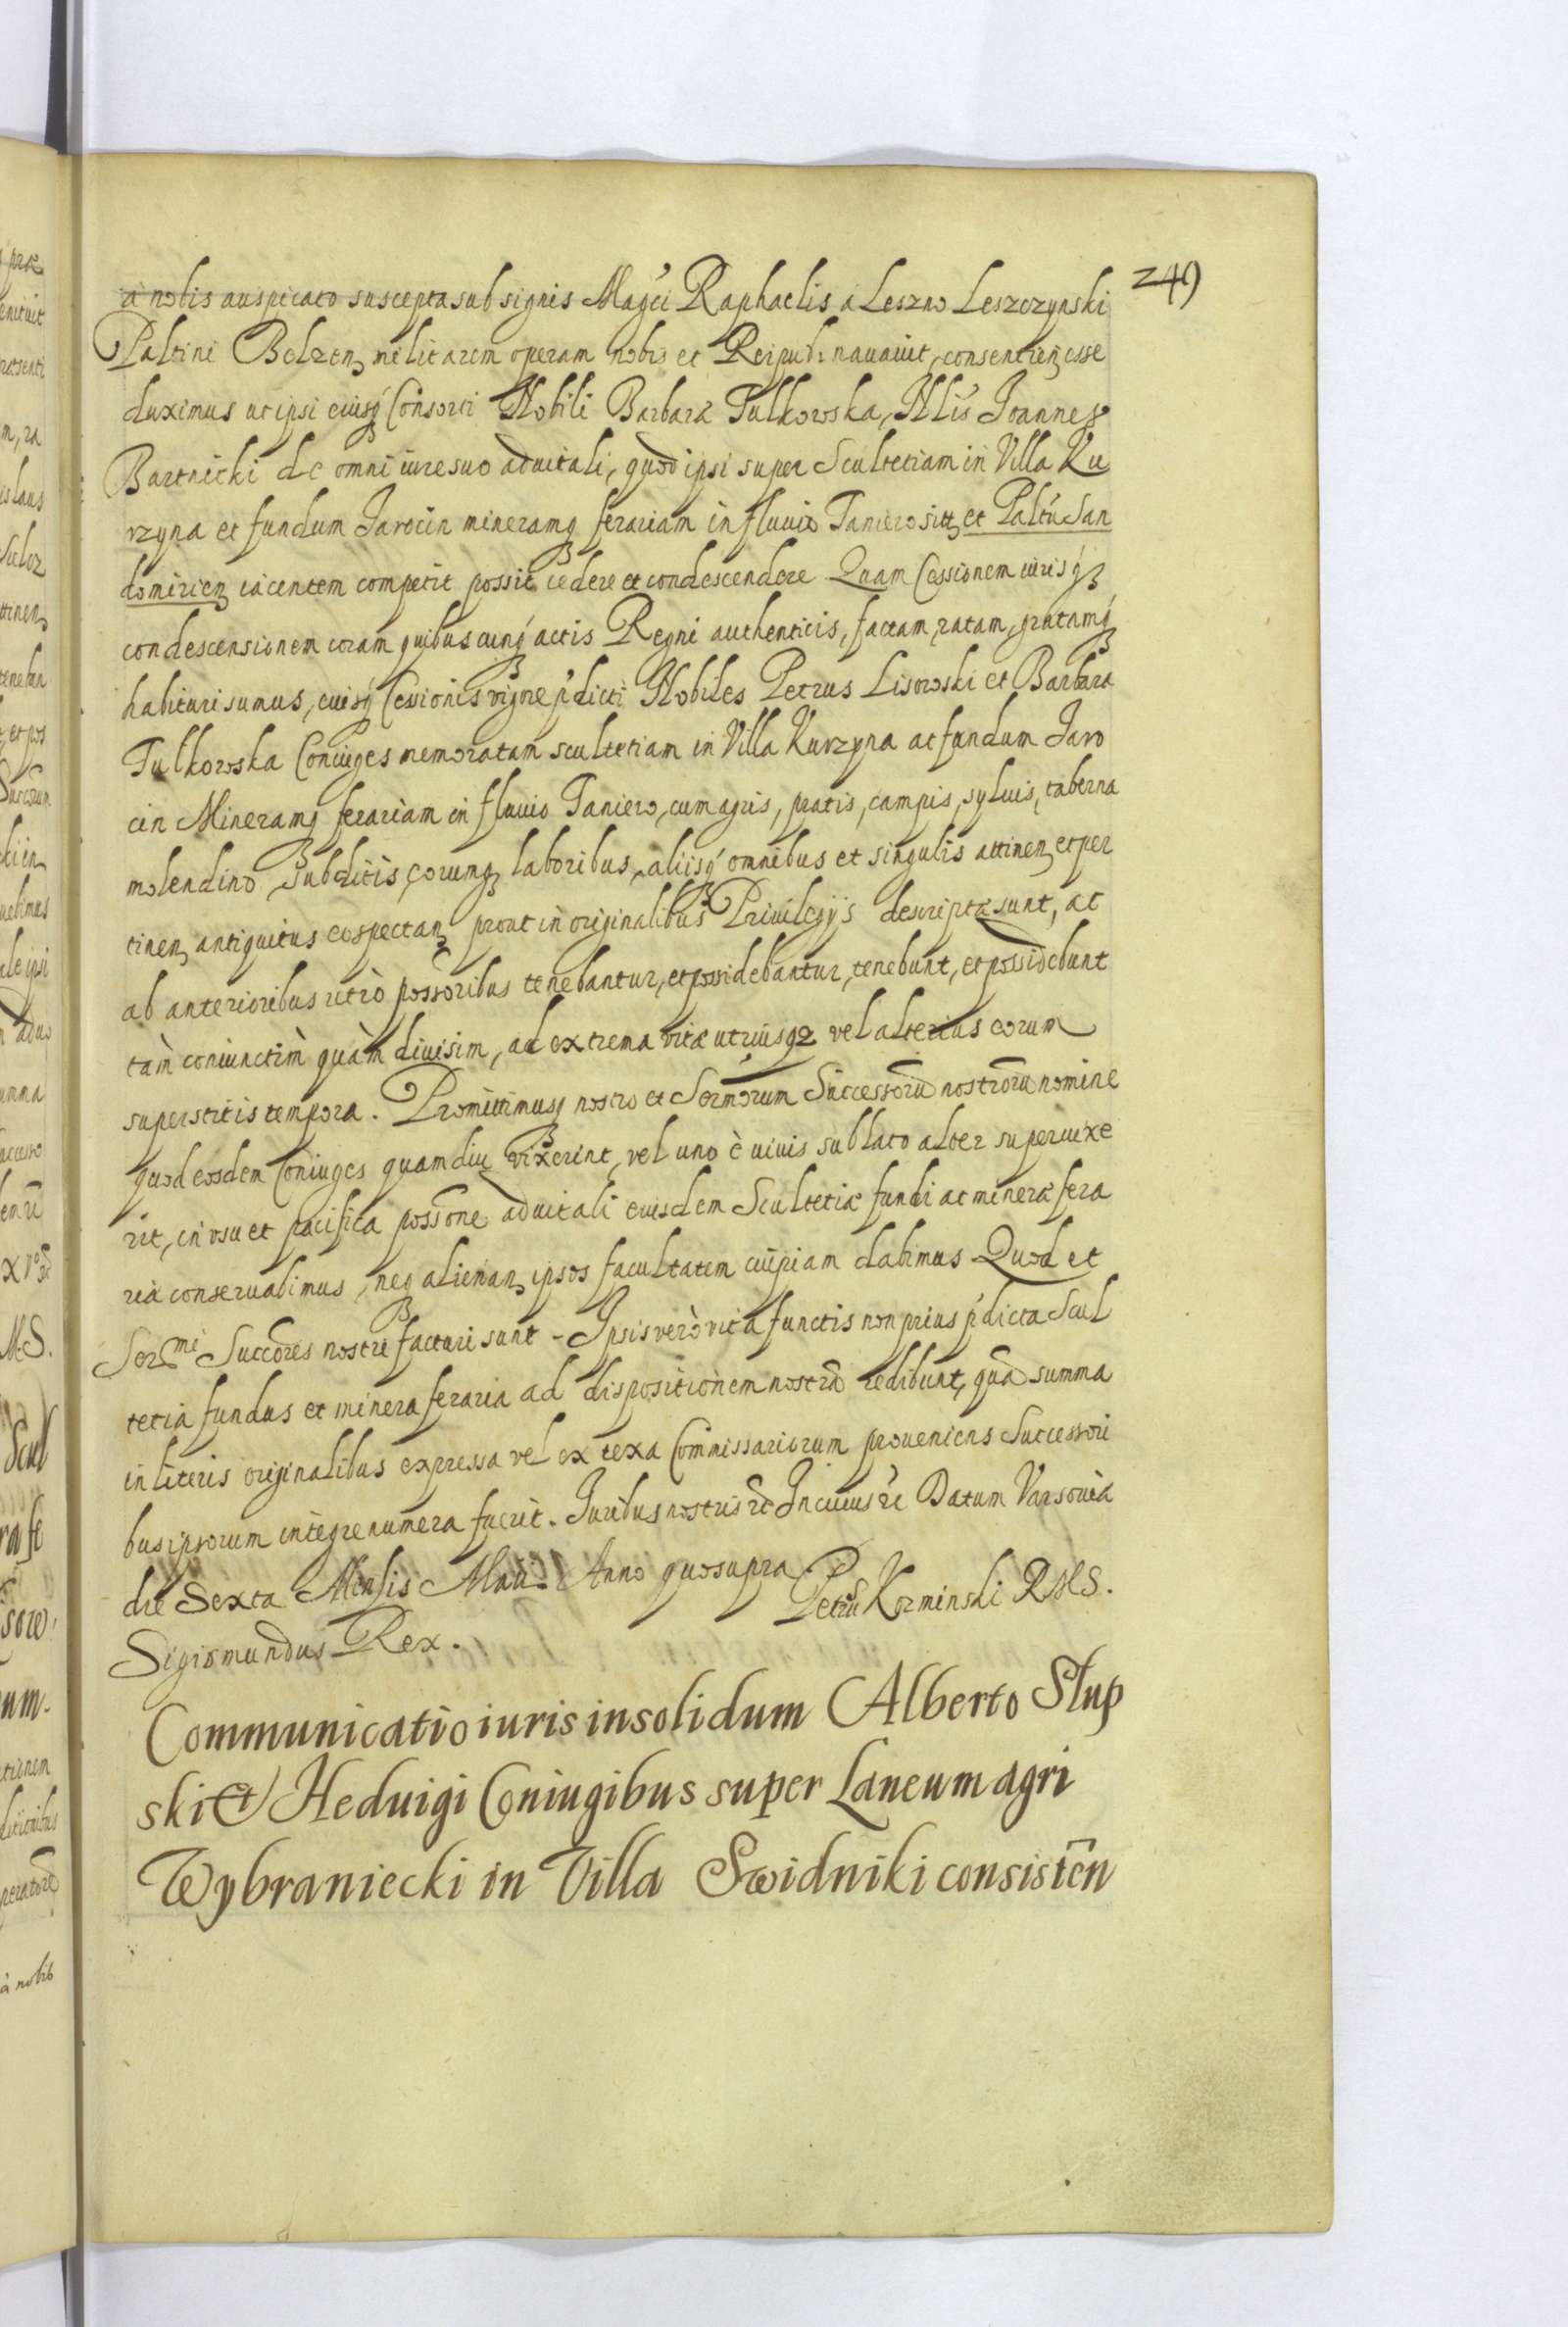 249
a nobis auspicato suscepta sub signis Magci Raphaelis a Leszno Leszczynski
Paltini Belzen militarem operam nobis et Reipub: nauauit, consentien esse
duximus ut ipsi eiusq Consorti Nobili Barbarae Tulkowska, Nlis Joannes
Bartnicki de omni iure suo aduitali, quod ipsi super Scultetiam in Villa Ku
rzyna et fundum Jarocin mineramq ferariam in fluuio Taniew sitt et Paltu San
domirien iacentem competit possit cedere et condescendere Quam Cessionem iurisq
condescensionem coram quibuscunq actis Regni authenticis, factam, ratam, gratamq
habituri sumus, cuiusq Cessionis vigore pdicti Nobiles Petrus Lisowski et Barbara
Tulkowska Coniuges memoratam scultetiam in Villa Kurzyna ac fundum Jaro
cin Mineramq ferariam in fluuio Taniew, cum agris, pratis, campis, syluis, taberna
molendino, subditis, eorumq laboribus, aliisq omnibus et singulis attinen et per
tinen antiquitus eo spectan prout in originalibus Priuilegijs descripta sunt, ac
ab anterioribus retrò possoribus tenebantur, et possidebantur, tenebunt, et possidebunt
tàm coniunctìm quàm diuisim, ad extrema vitae utriusqz vel alterius eorum
superstitis tempora. Promittimusq nostro et Sermorum Successorū nostrorū nomine
quod eosdem Coniuges quamdiu vixerint, vel uno è viuis sublato alter superuixe
rit, in vsu et pacifica possone aduitali eiusdem Scultetiae fundi ac minerae fera
riae conseruabimus, neq alienan ipsos facultatem cuipiam dabimus Quod et
Sermi Succores nostri facturi sunt - Ipsis verò vita functis non prius pdicta Scul
tetia fundus et minera feraria ad dispositionem nostrā redibunt, quā summa
in literis originalibus expressa vel ex texa Commissariorum proueniens Successori
bus ipsorum integre numera fuerit. Juribus nostris etc Incuius rei Datum Varsouiae
die Sexta Mensis Maii. Anno quo supra
Petrus Korminski RMS.
Sigismundus Rex.
Communicatio iuris insolidum Alberto Slup
ski et Heduigi Coniugibus super Laneum agri
Wybraniecki in Villa Swidniki consisten